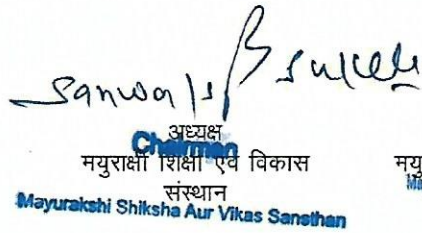 अध्यक्ष
Chairman
मयुराक्षी शिक्षा एवं विकास
संस्थान
Mayurakshi Shiksha Aur Vikas Sansthan
मयु